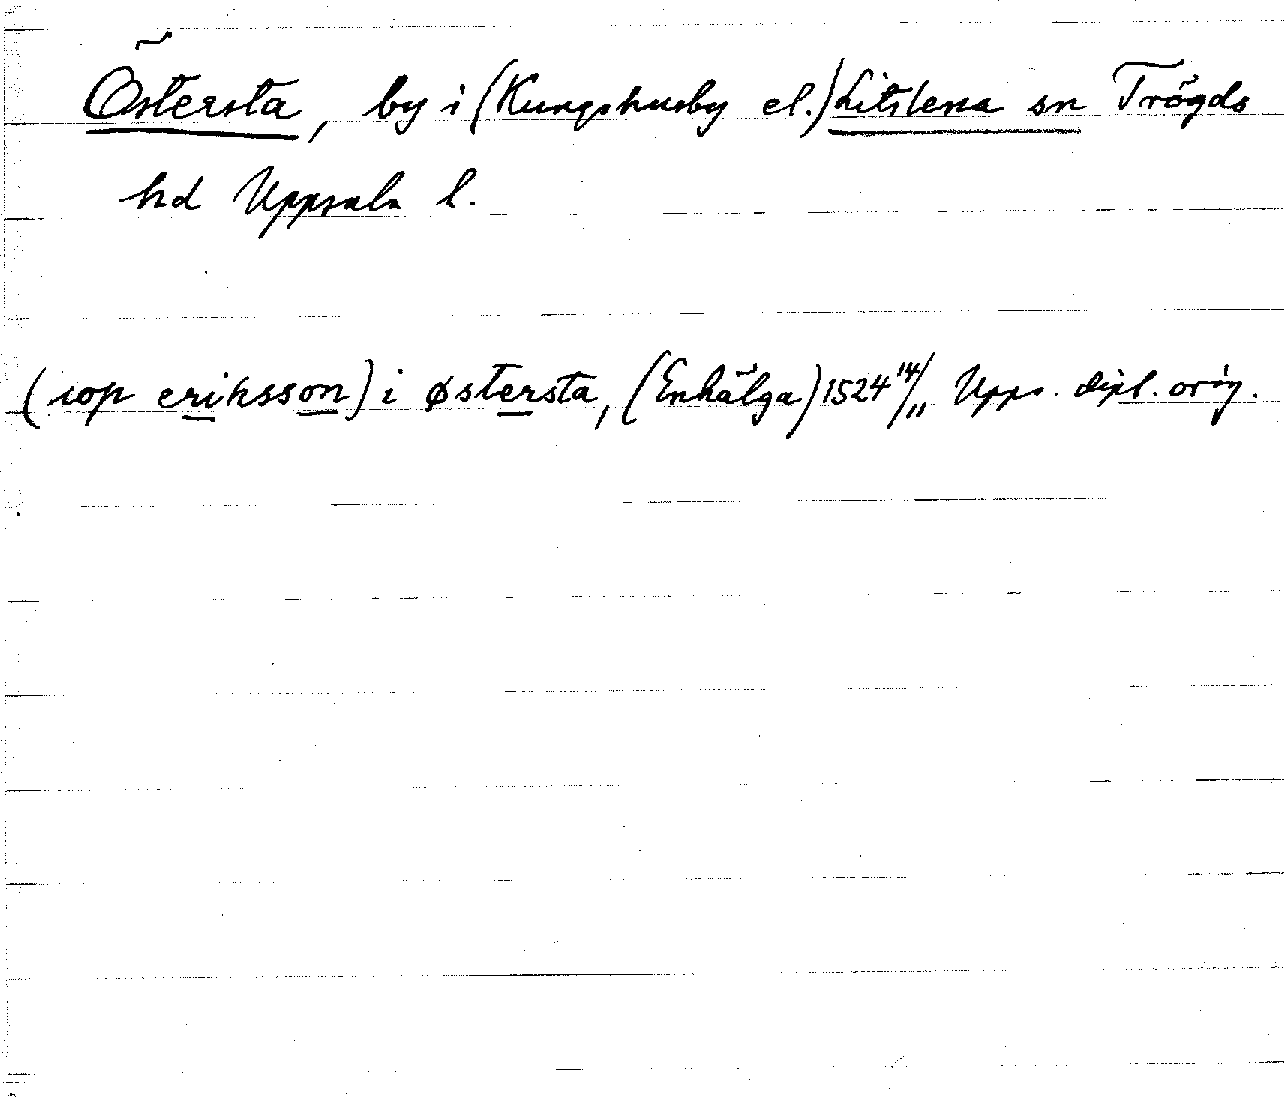 Östersta, by i (Kungshusby el.) Litslena sn Trögds
hd Uppsala l.
(iop eriksson) i østersta, (Enhälga) 1524 14/11 Upps. dipl. orig.